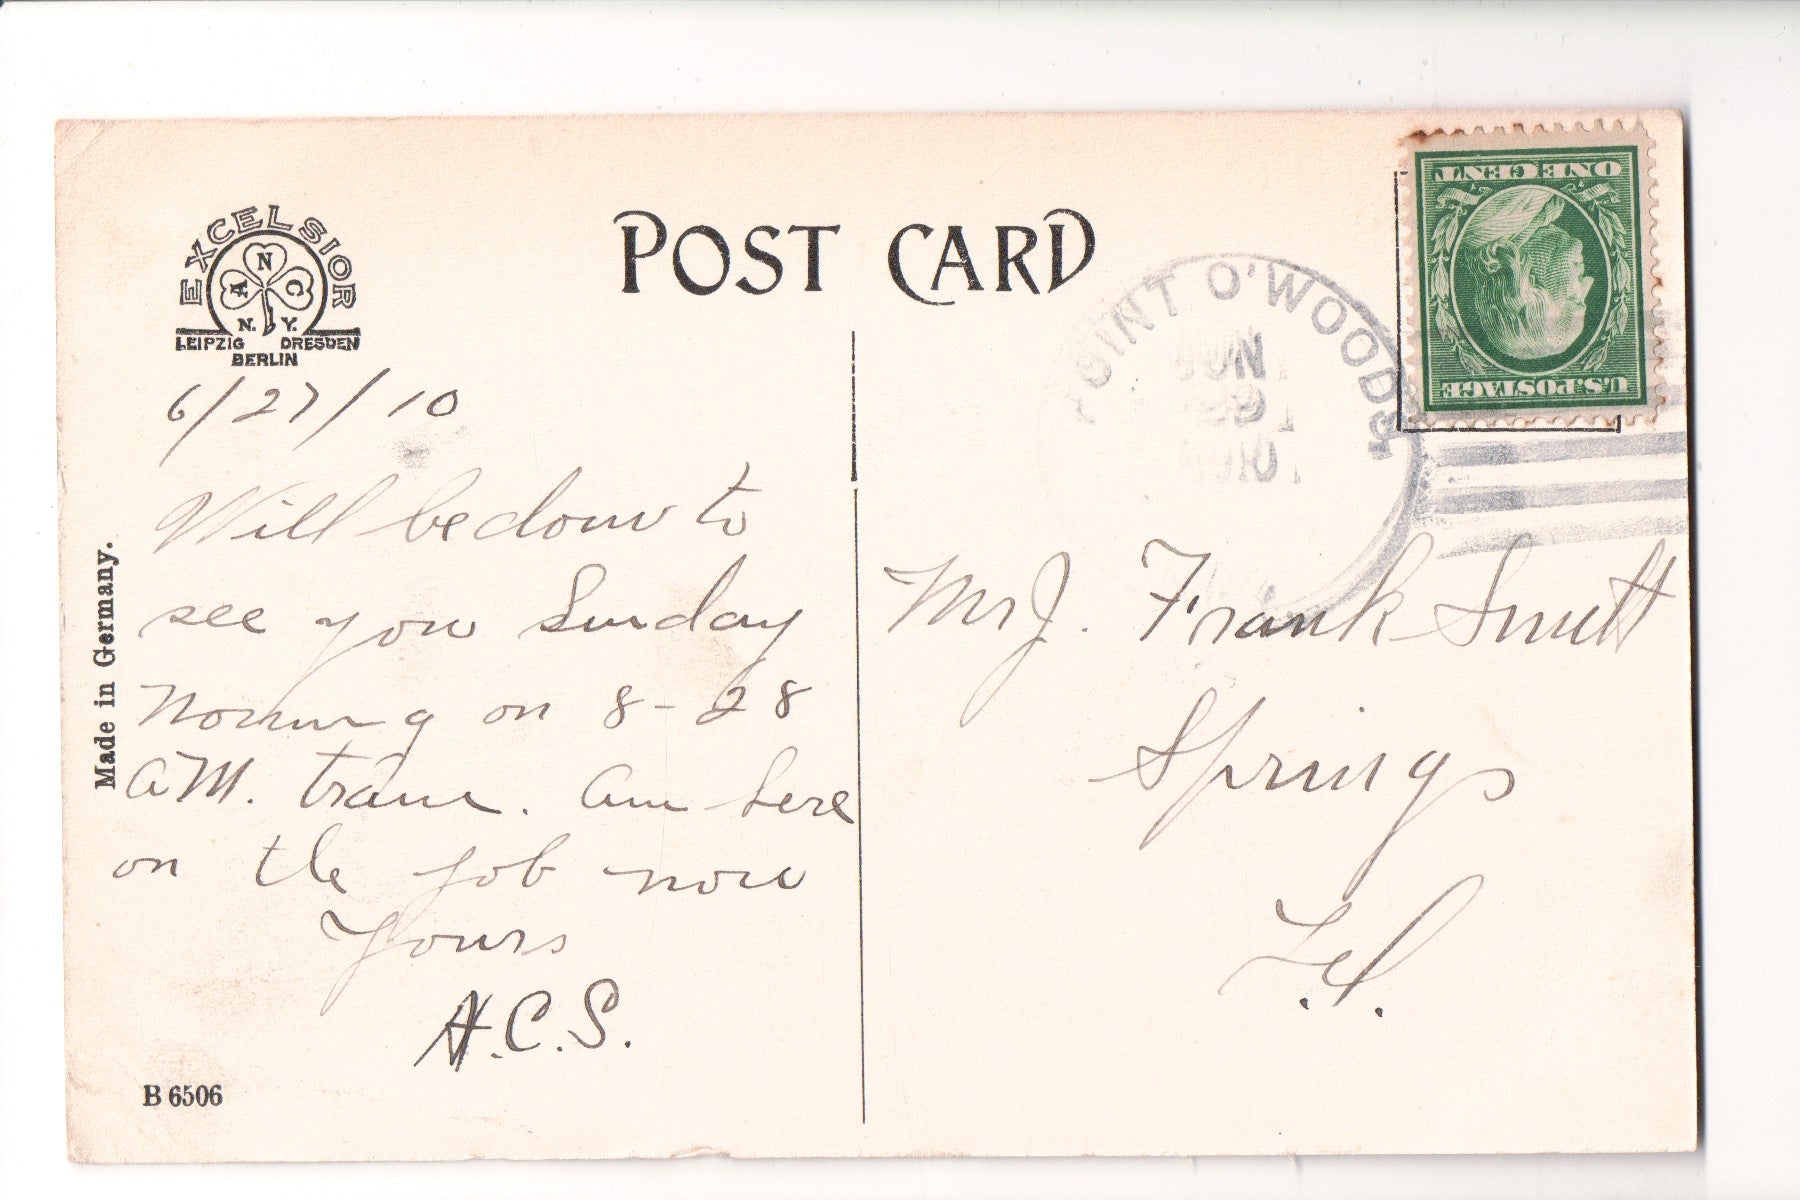 POST CARD
EXCELSIOR
A N C
N. Y.
LEIPZIG DRESDEN
BERLIN
6/27/10
Will be down to
see you Sunday
Morning on 8-28
AM. train. Am here
on the job now
Yours
A.C.S.
B 6506
Made in Germany.
POINT O'WOODS
JUN
1910
ONE CENT
U.S. POSTAGE
Mr J. Frank Smith
Springs
L.I.